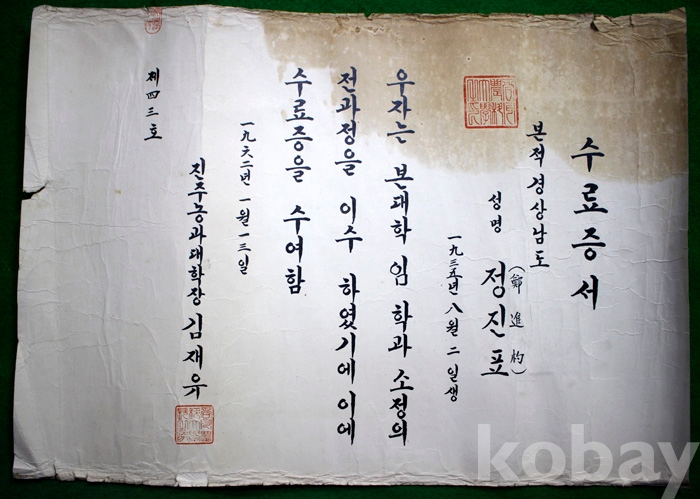 수료증서
본적 경상남도
성명 정진표
(鄭進杓)
一九三五년 八월 二일생
우자는 본대학 임학과 소정의
전과정을 이수 하였기에 이에
수료증을 수여함
一九六二년 一월 一三일
진주농과대학장 김재유
제四三호
kobay